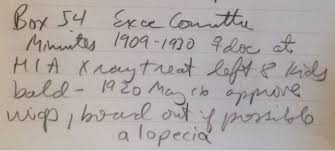 Box 54 Exec Committee
Minutes 1909-1930 9 doc at
HIA X ray treat left 8 kids
bald - 1920 May 16 approve
wigs, board out if possible
alopecia